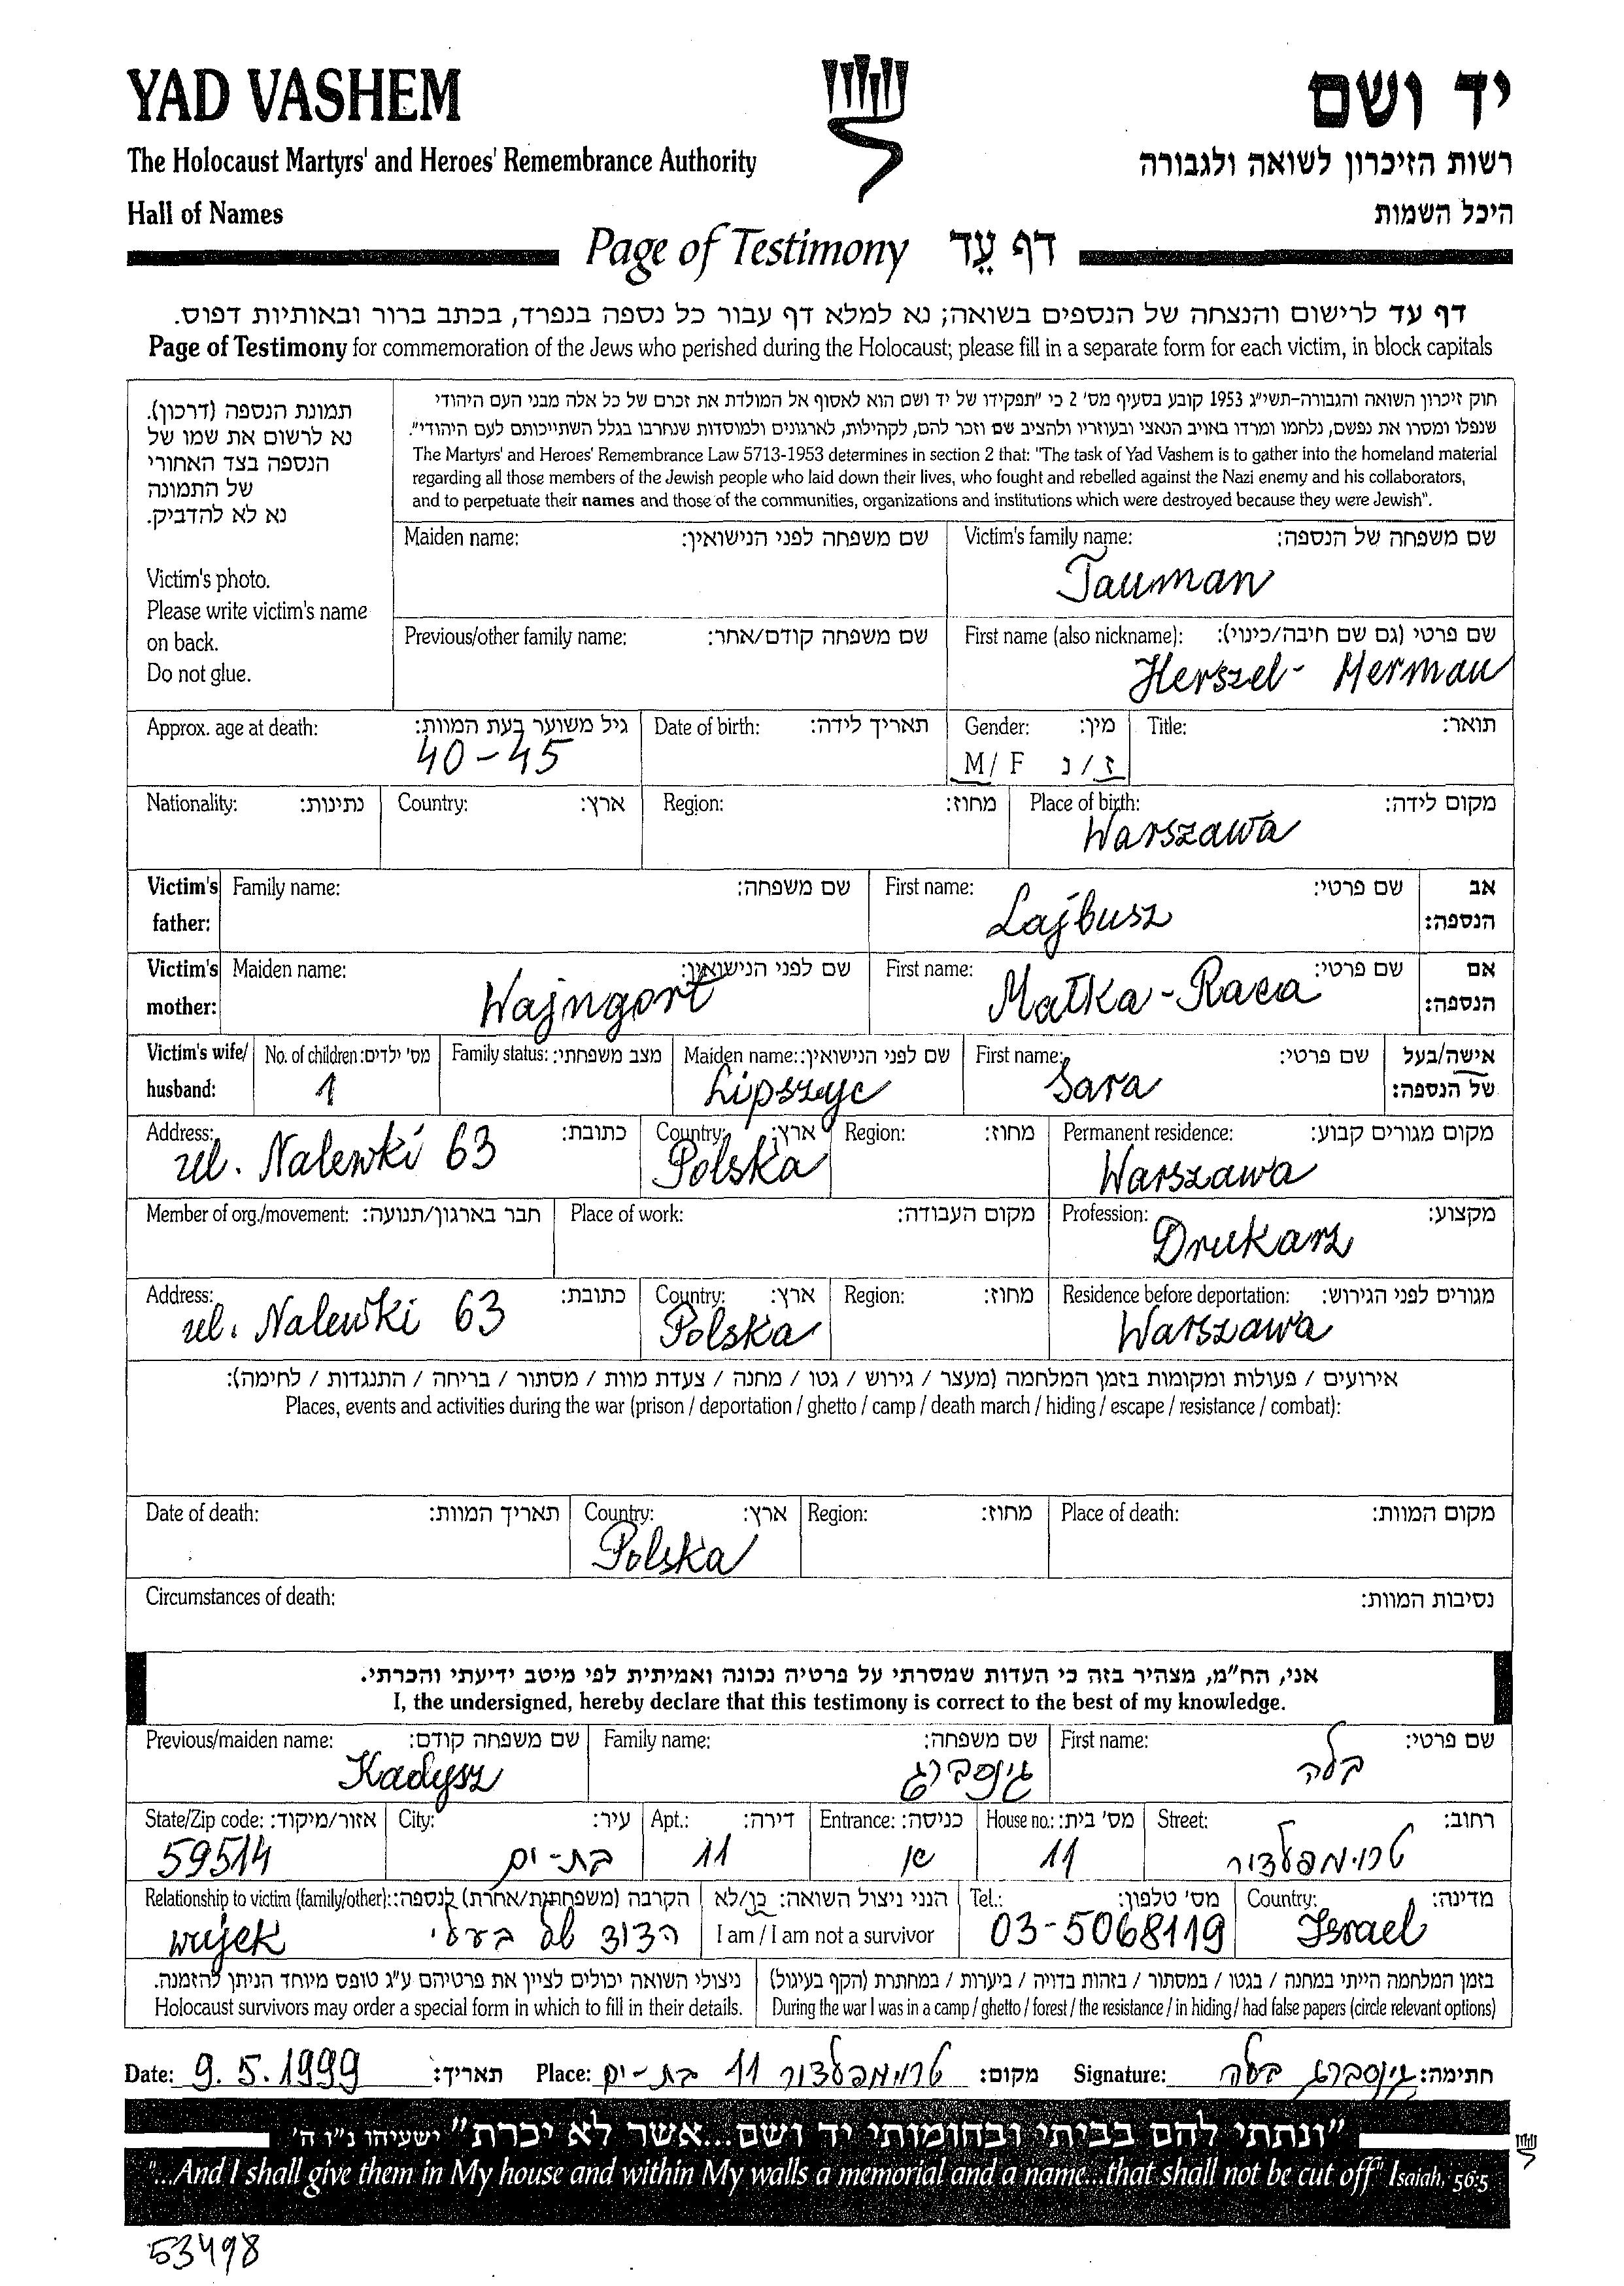 YAD VASHEM
יד ושם
The Holocaust Martyrs' and Heroes' Remembrance Authority
רשות הזיכרון לשואה ולגבורה
Hall of Names
היכל השמות
Page of Testimony דף עֵד
דף עד לרישום והנצחה של הנספים בשואה; נא למלא דף עבור כל נספה בנפרד, בכתב ברור ובאותיות דפוס.
Page of Testimony for commemoration of the Jews who perished during the Holocaust; please fill in a separate form for each victim, in block capitals
תמונת הנספה (דרכון).
נא לרשום את שמו של
הנספה בצד האחורי
של התמונה
נא לא להדביק.
Victim's photo.
Please write victim's name
on back.
Do not glue.
חוק זיכרון השואה והגבורה-תשי"ג 1953 קובע בסעיף מס' 2 כי "תפקידו של יד ושם הוא לאסוף אל המולדת את זכרם של כל אלה מבני העם היהודי
שנפלו ומסרו את נפשם, נלחמו ומרדו באויב הנאצי ובעוזריו ולהציב שם וזכר להם, לקהילות, לארגונים ולמוסדות שנחרבו בגלל השתייכותם לעם היהודי".
The Martyrs' and Heroes' Remembrance Law 5713-1953 determines in section 2 that: "The task of Yad Vashem is to gather into the homeland material
regarding all those members of the Jewish people who laid down their lives, who fought and rebelled against the Nazi enemy and his collaborators,
and to perpetuate their names and those of the communities, organizations and institutions which were destroyed because they were Jewish".
Maiden name: שם משפחה לפני הנישואין: Victim's family name: שם משפחה של הנספה:
Tauman
Previous/other family name: שם משפחה קודם/אחר: First name (also nickname): שם פרטי (גם שם חיבה/כינוי):
Herszel- Herman
Approx. age at death: גיל משוער בעת המוות: Date of birth: תאריך לידה: Gender: מין: Title: תואר:
40-45 M/ F ז / נ
Nationality: נתינות: Country: ארץ: Region: מחוז: Place of birth: מקום לידה:
Warszawa
Victim's father: Family name: שם משפחה: First name: שם פרטי: אב הנספה:
Lajbusz
Victim's mother: Maiden name: שם לפני הנישואין: First name: שם פרטי: אם הנספה:
Wajngort Małka-Raca
Victim's wife/ husband: No. of children: מס' ילדים: Family status: מצב משפחתי: Maiden name: שם לפני הנישואין: First name: שם פרטי: אישה/בעל של הנספה:
1 Lipszyc Sara
Address: כתובת: Country: ארץ: Region: מחוז: Permanent residence: מקום מגורים קבוע:
ul. Nalewki 63 Polska Warszawa
Member of org./movement: חבר בארגון/תנועה: Place of work: מקום העבודה: Profession: מקצוע:
Drukarz
Address: כתובת: Country: ארץ: Region: מחוז: Residence before deportation: מגורים לפני הגירוש:
ul. Nalewki 63 Polska Warszawa
אירועים / פעולות ומקומות בזמן המלחמה (מעצר / גירוש / גטו / מחנה / צעדת מוות / מסתור / בריחה / התנגדות / לחימה):
Places, events and activities during the war (prison / deportation / ghetto / camp / death march / hiding / escape / resistance / combat):
Date of death: תאריך המוות: Country: ארץ: Region: מחוז: Place of death: מקום המוות:
Polska
Circumstances of death: נסיבות המוות:
אני, הח"מ, מצהיר בזה כי העדות שמסרתי על פרטיה נכונה ואמיתית לפי מיטב ידיעתי והכרתי.
I, the undersigned, hereby declare that this testimony is correct to the best of my knowledge.
Previous/maiden name: שם משפחה קודם: Family name: שם משפחה: First name: שם פרטי:
Kadysz גינסברג בלה
State/Zip code: אזור/מיקוד: City: עיר: Apt.: דירה: Entrance: כניסה: House no.: מס' בית: Street: רחוב:
59514 בת-ים 11 א 11 טרומפלדור
Relationship to victim (family/other): הקרבה (משפחתית/אחרת) לנספה: הנני ניצול השואה: כן/לא Tel.: מס' טלפון: Country: מדינה:
wujek הדוד של בעלי I am / I am not a survivor 03-5068119 Israel
ניצולי השואה יכולים לציין את פרטיהם ע"ג טופס מיוחד הניתן להזמנה. בזמן המלחמה הייתי במחנה / בגטו / במסתור / בזהות בדויה / ביערות / במחתרת (הקף בעיגול)
Holocaust survivors may order a special form in which to fill in their details. During the war I was in a camp / ghetto / forest / the resistance / in hiding / had false papers (circle relevant options)
Date: 9.5.1999 תאריך: Place: טרומפלדור 11 בת-ים מקום: Signature: גינסברג בלה חתימה:
"ונתתי להם בביתי ובחומותי יד ושם...אשר לא יכרת" ישעיהו נ"ו ה'
"...And I shall give them in My house and within My walls a memorial and a name...that shall not be cut off" Isaiah, 56:5
53498